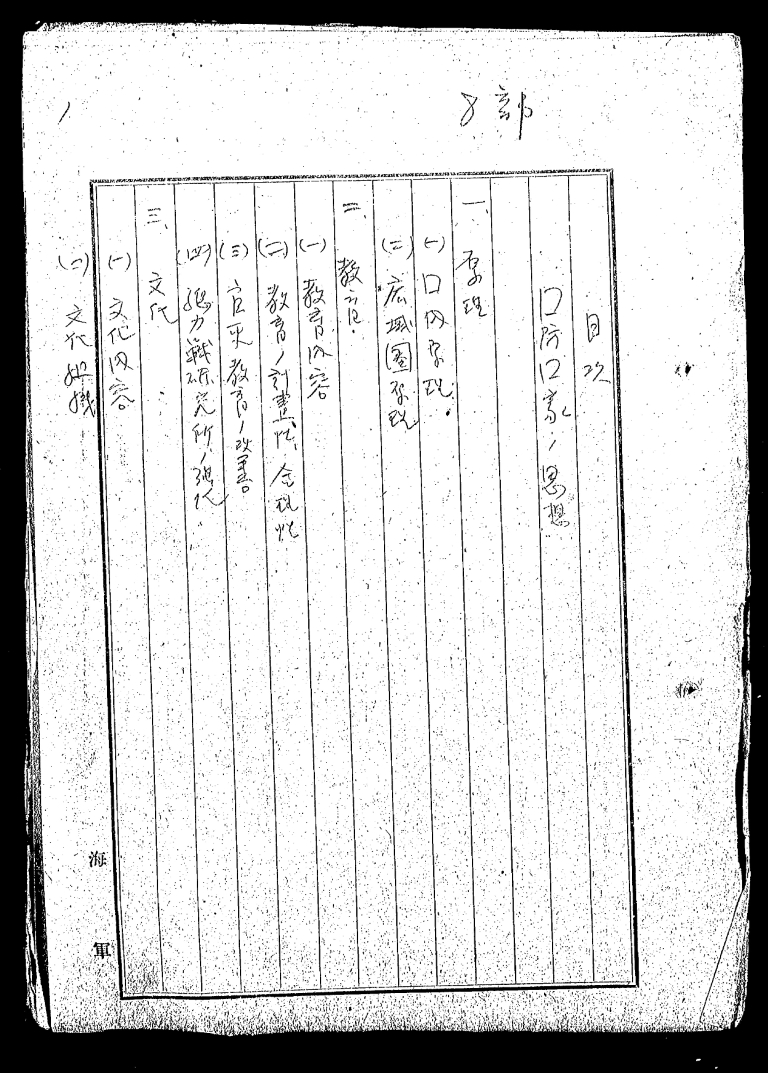 8部
目次
口防口家ノ思想
一、原理
(一) 口内原理
(二) 広域圏原理
二、教育
(一) 教育内容
(二) 教育ノ計画性、合理性
(三) 官吏教育ノ改善
(四) 総力戦研究所ノ強化
三、文化
(一) 文化内容
(二) 文化組織
海軍